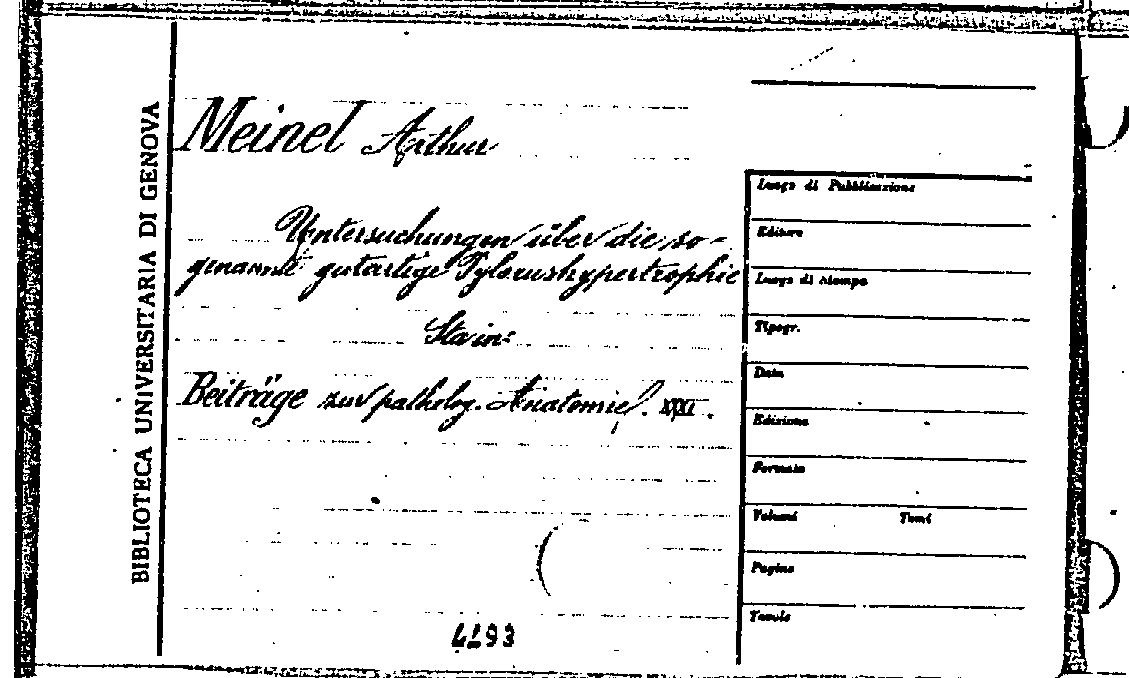 BIBLIOTECA UNIVERSITARIA DI GENOVA
Meinel Arthur
Untersuchungen über die so-
genannte gutartige Pylorushypertrophie
Sta in:
Beiträge zur patholog. Anatomie.
4193
Luogo di Pubblicazione
Editore
Luogo di stampa
Tipogr.
Data
Edizione
Formato
Volumi Tomi
Pagine
Tavole